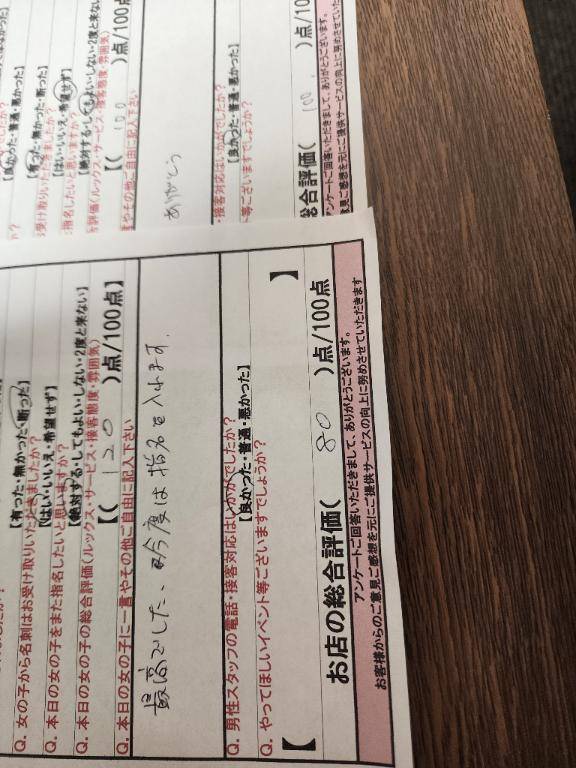 【有った・無かった・断った】
Q. 女の子から名刺はお受け取りいただきましたか？
【はい・いいえ・希望せず】
Q. 本日の女の子をまた指名したいと思いますか？
【絶対する・してもよい・しない・2度と来ない】
Q. 本日の女の子の総合評価(ルックス・サービス・接客態度・雰囲気)
【( 120 )点/100点】
Q. 本日の女の子に一言やその他ご自由に記入下さい
最高でした、今度は指名を入れます.
Q. 男性スタッフの電話・接客対応はいかがでしたか？
【良かった・普通・悪かった】
Q. やってほしいイベント等ございますでしょうか？
【 】
お店の総合評価( 80 )点/100点
アンケートご回答いただきまして、ありがとうございます。
お客様からのご意見ご感想を元にご提供サービスの向上に努めさせていただきます
【良かった・普通・悪かった】
【有った・無かった・断った】
お受け取りいただきましたか？
【はい・いいえ・希望せず】
指名したいと思いますか？
【絶対する・してもよい・しない・2度と来ない】
評価(ルックス・サービス・接客態度・雰囲気)
【( 100 )点/100点
言やその他ご自由に記入下さい
ありがとう
・接客対応はいかがでしたか？
【良かった・普通・悪かった】
ト等ございますでしょうか？
総合評価( 100 )点/10
アンケートご回答いただきまして、ありがとうございます。
意見ご感想を元にご提供サービスの向上に努めさせていた